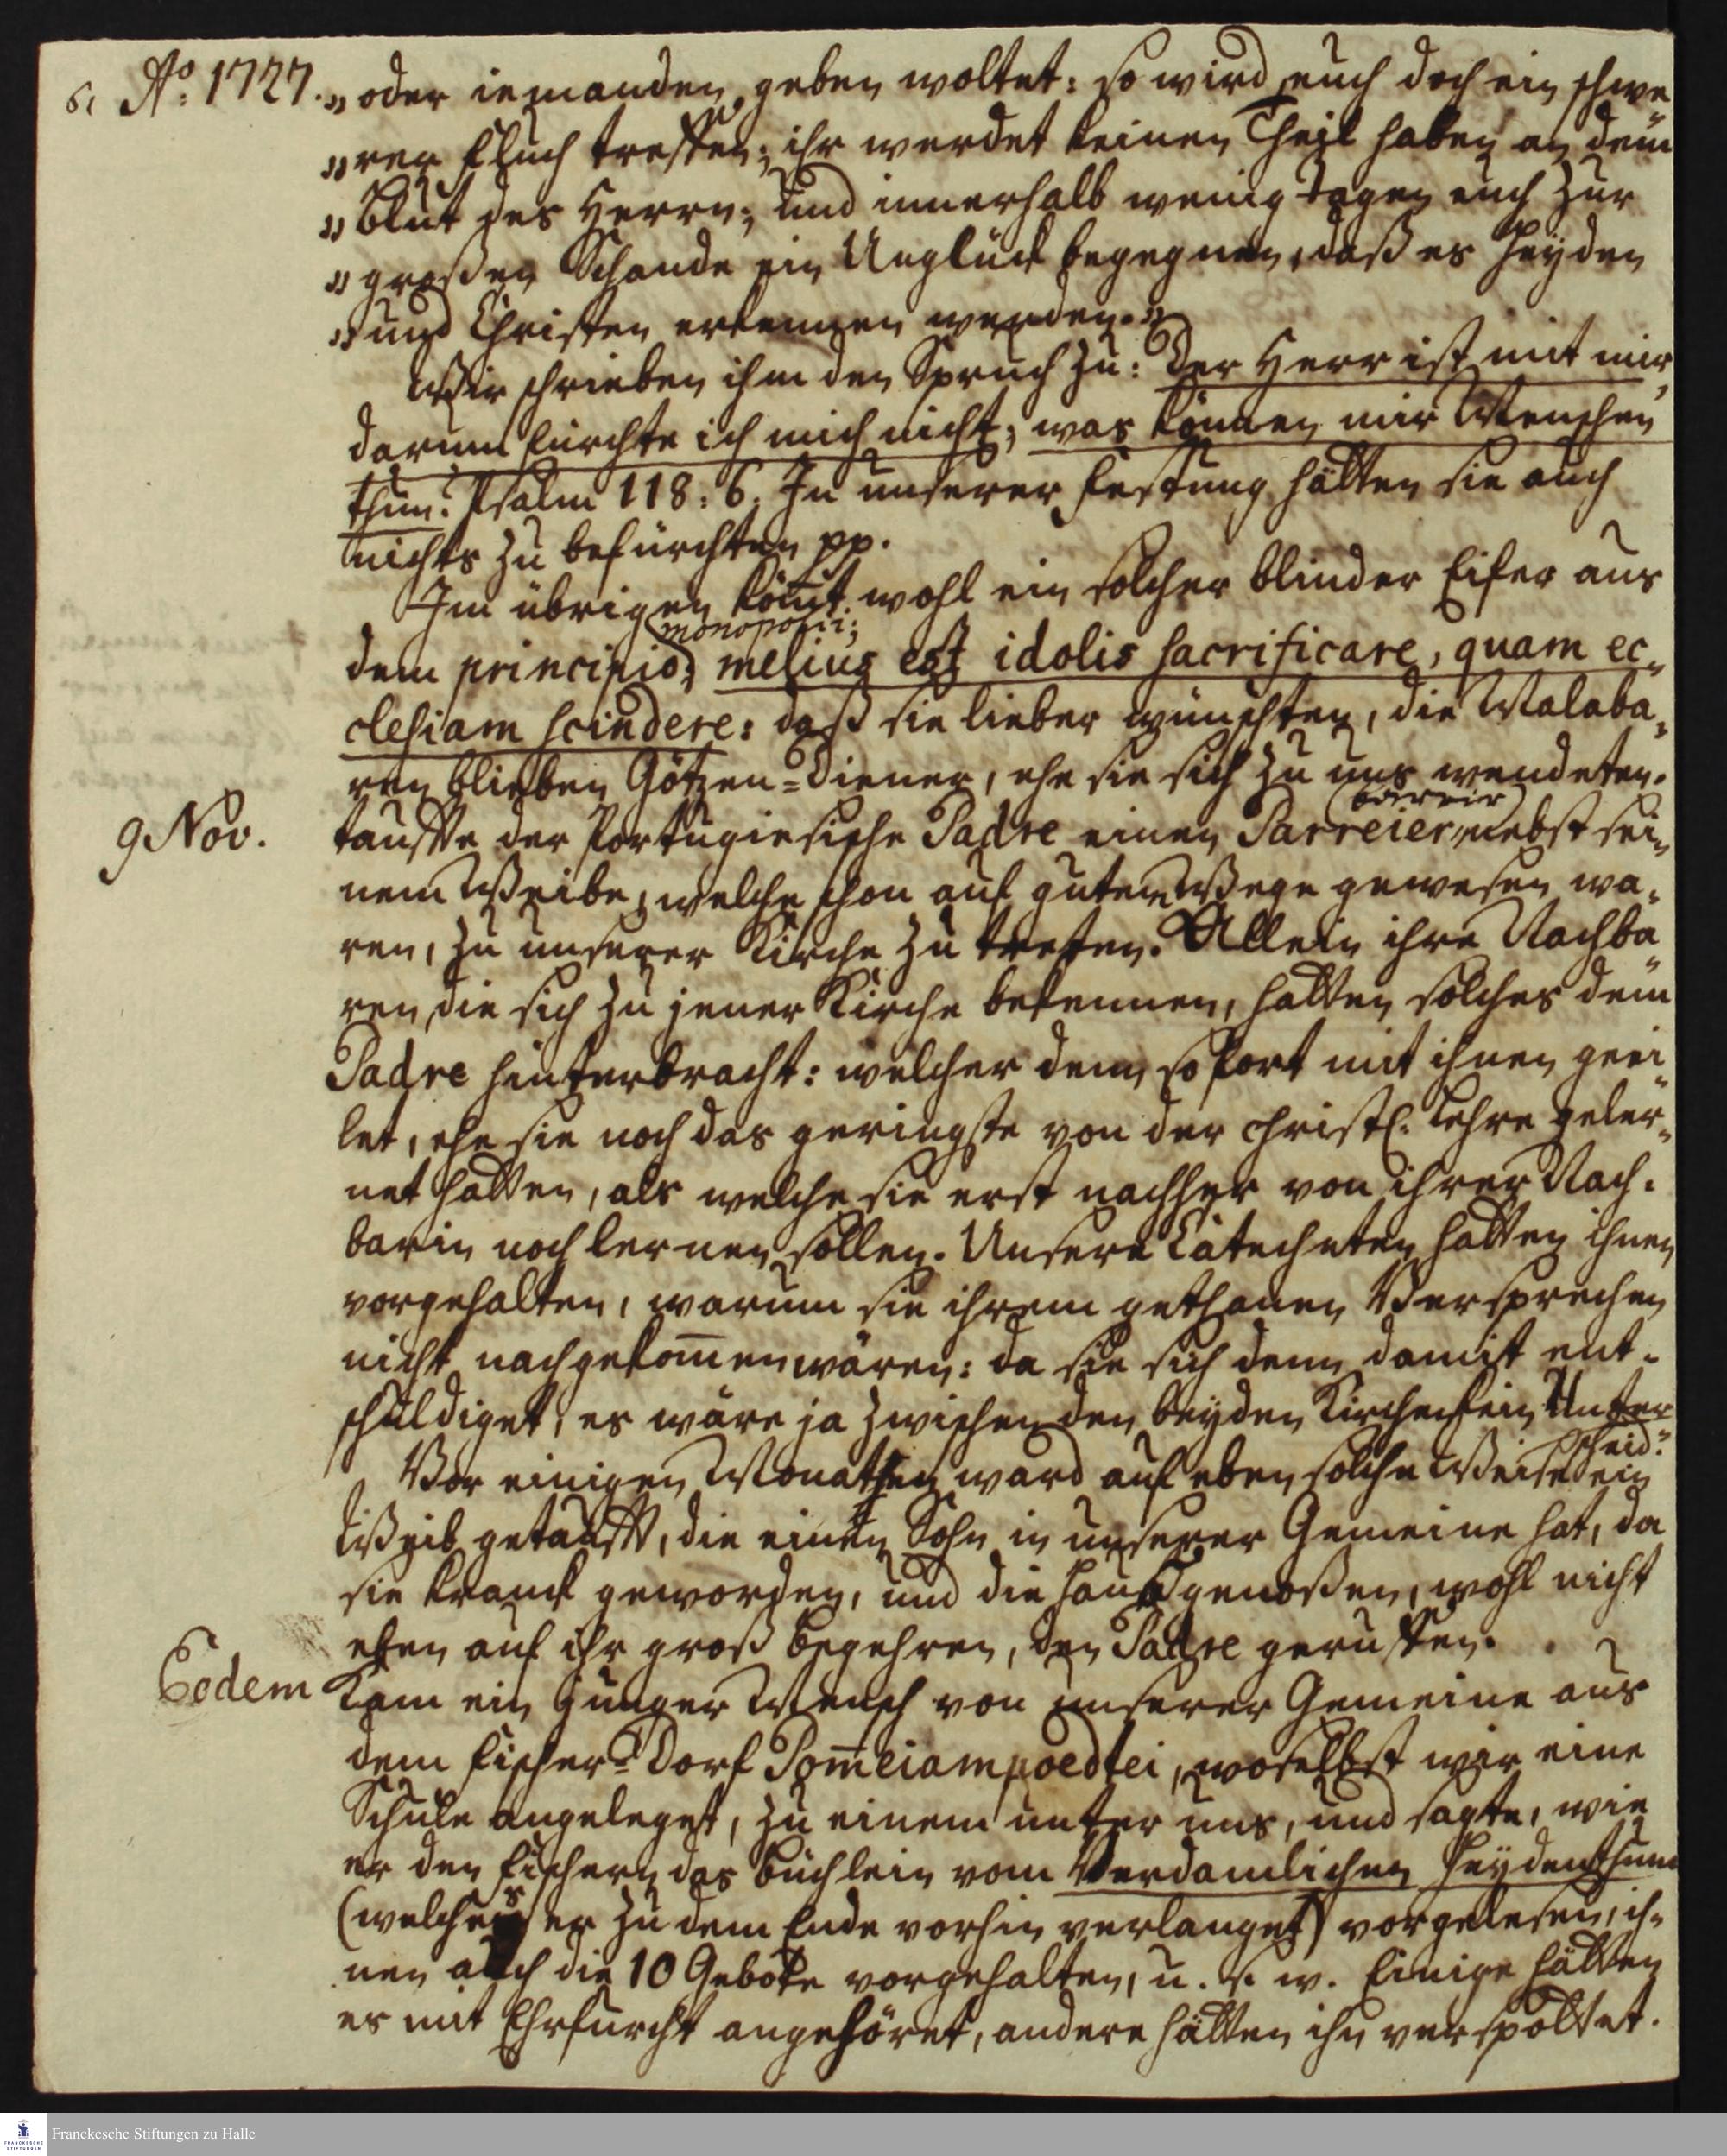 6. Aº. 1727. „oder iemanden geben woltet: so wird euch doch ein schwe„
„rer Fluch treffen; ihr werdet keinen Theil haben an dem
„Blut des Herrn; und innerhalb wenig Tagen euch zur
„großen Schande ein Unglück begegnen, daß es Heyden
„und Christen erkennen werden.„
Wir schrieben ihm den Spruch zu: Der Herr ist mit mir,
darum fürchte ich mich nicht; was können mir Menschen
thun. Psalm 118: 6. In unserer Festung hätten sie auch
nichts zu befürchten pp.
Im übrigen kom̄t wohl ein solcher blinder Eifer aus
monopolii;
dem principio; melius est idolis sacrificare, quam ec„
clesiam scindere: daß sie lieber wünschten, die Malaba„
ren blieben Götzen=Diener, ehe sie sich zu uns wendeten.
barreir
9 Nov. tauffte der Portugiesische Padre einen Parreier, nebst sei„
nem Weibe, welche schon auf gutem Wege gewesen wa„
ren, zu unserer Kirche zu treten. Allein ihre Nachba„
ren, die sich zu jener Kirche bekennen, hatten solches dem
Padre hinterbracht: welcher denn so fort mit ihnen geei„
let, ehe sie noch das geringste von der christl. Lehre geler„
net hatten, als welche sie erst nachher von ihrer Nach„
barin noch lernen sollen. Unsere Catecheten hatten ihnen
vorgehalten, warum sie ihrem gethanen Versprechen
nicht nachgekom̄en wären: da sie sich denn damit ent„
schuldiget, es wäre ja zwischen den beyden Kirchen kein Unter
scheid.
Vor einigen Monathen ward auf eben solche Weise ein
Weib getaufft, die einen Sohn in unserer Gemeine hat, da
sie kranck geworden, und die Haußgenoßen, wohl nicht
eben auf ihr groß Begehren, den Padre geruffen.
Eodem Kam ein junger Mensch von unserer Gemeine aus
dem Fischer=Dorf Pom̄eiampoedtei, woselbst wir eine
Schule angeleget, zu einem unter uns, und sagte, wie
er den Fischern das Büchlein vom Verdamlichen Heydenthum
(welches er zu dem Ende vorhin verlanget) vorgelesen, ih„
nen auch die 10 Gebote vorgehalten, u. s. w. Einige hätten
es mit Ehrfurcht angehöret, andere hätten ihn verspottet.
Franckesche Stiftungen zu Halle
FRANCKESCHE
STIFTUNGEN